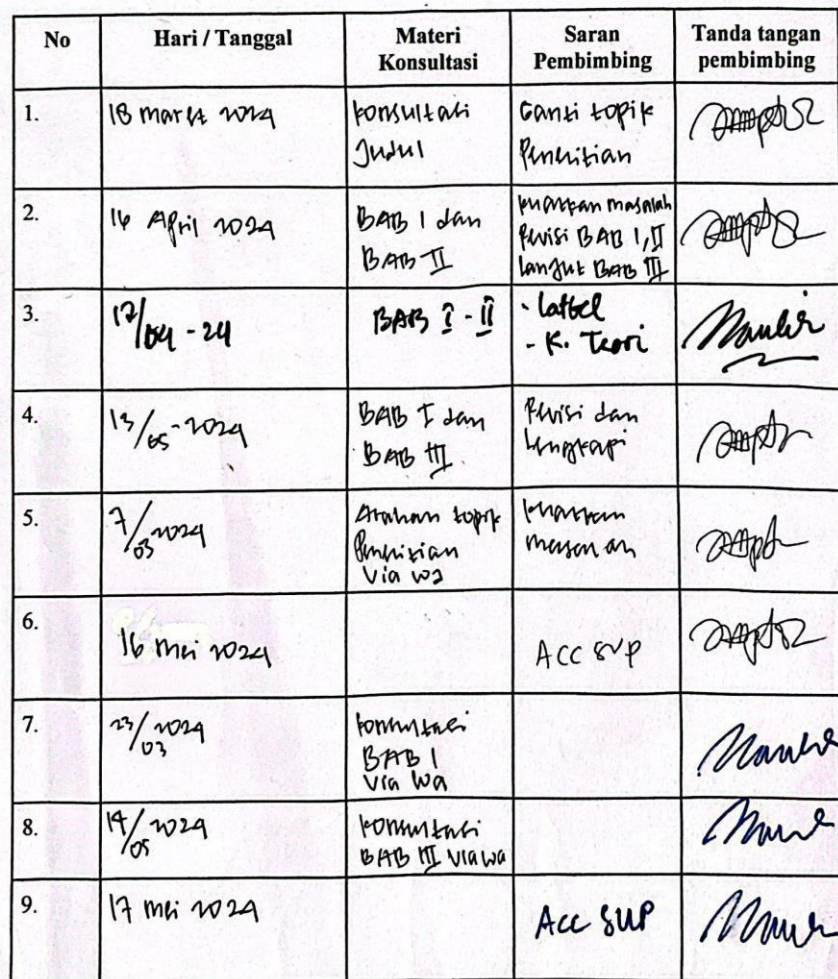 No Hari / Tanggal Materi Konsultasi Saran Pembimbing Tanda tangan pembimbing
1. 18 maret 2024 Konsultasi Judul Ganti topik Penelitian
2. 16 April 2024 BAB I dan BAB II kuatkan masalah Revisi BAB I, II Lanjut BAB III
3. 17/04 - 24 BAB I - II - Latbel - K. Teori
4. 13/05 - 2024 BAB I dan BAB III Revisi dan Lengkapi
5. 7/03 2024 Arahan topik Penelitian Via wa kuatkan
6. 16 mei 2024 ACC SUP
7. 23/03 2024 konsultasi BAB I Via wa
8. 14/05 2024 konsultasi BAB III via wa
9. 17 mei 2024 Acc SUP